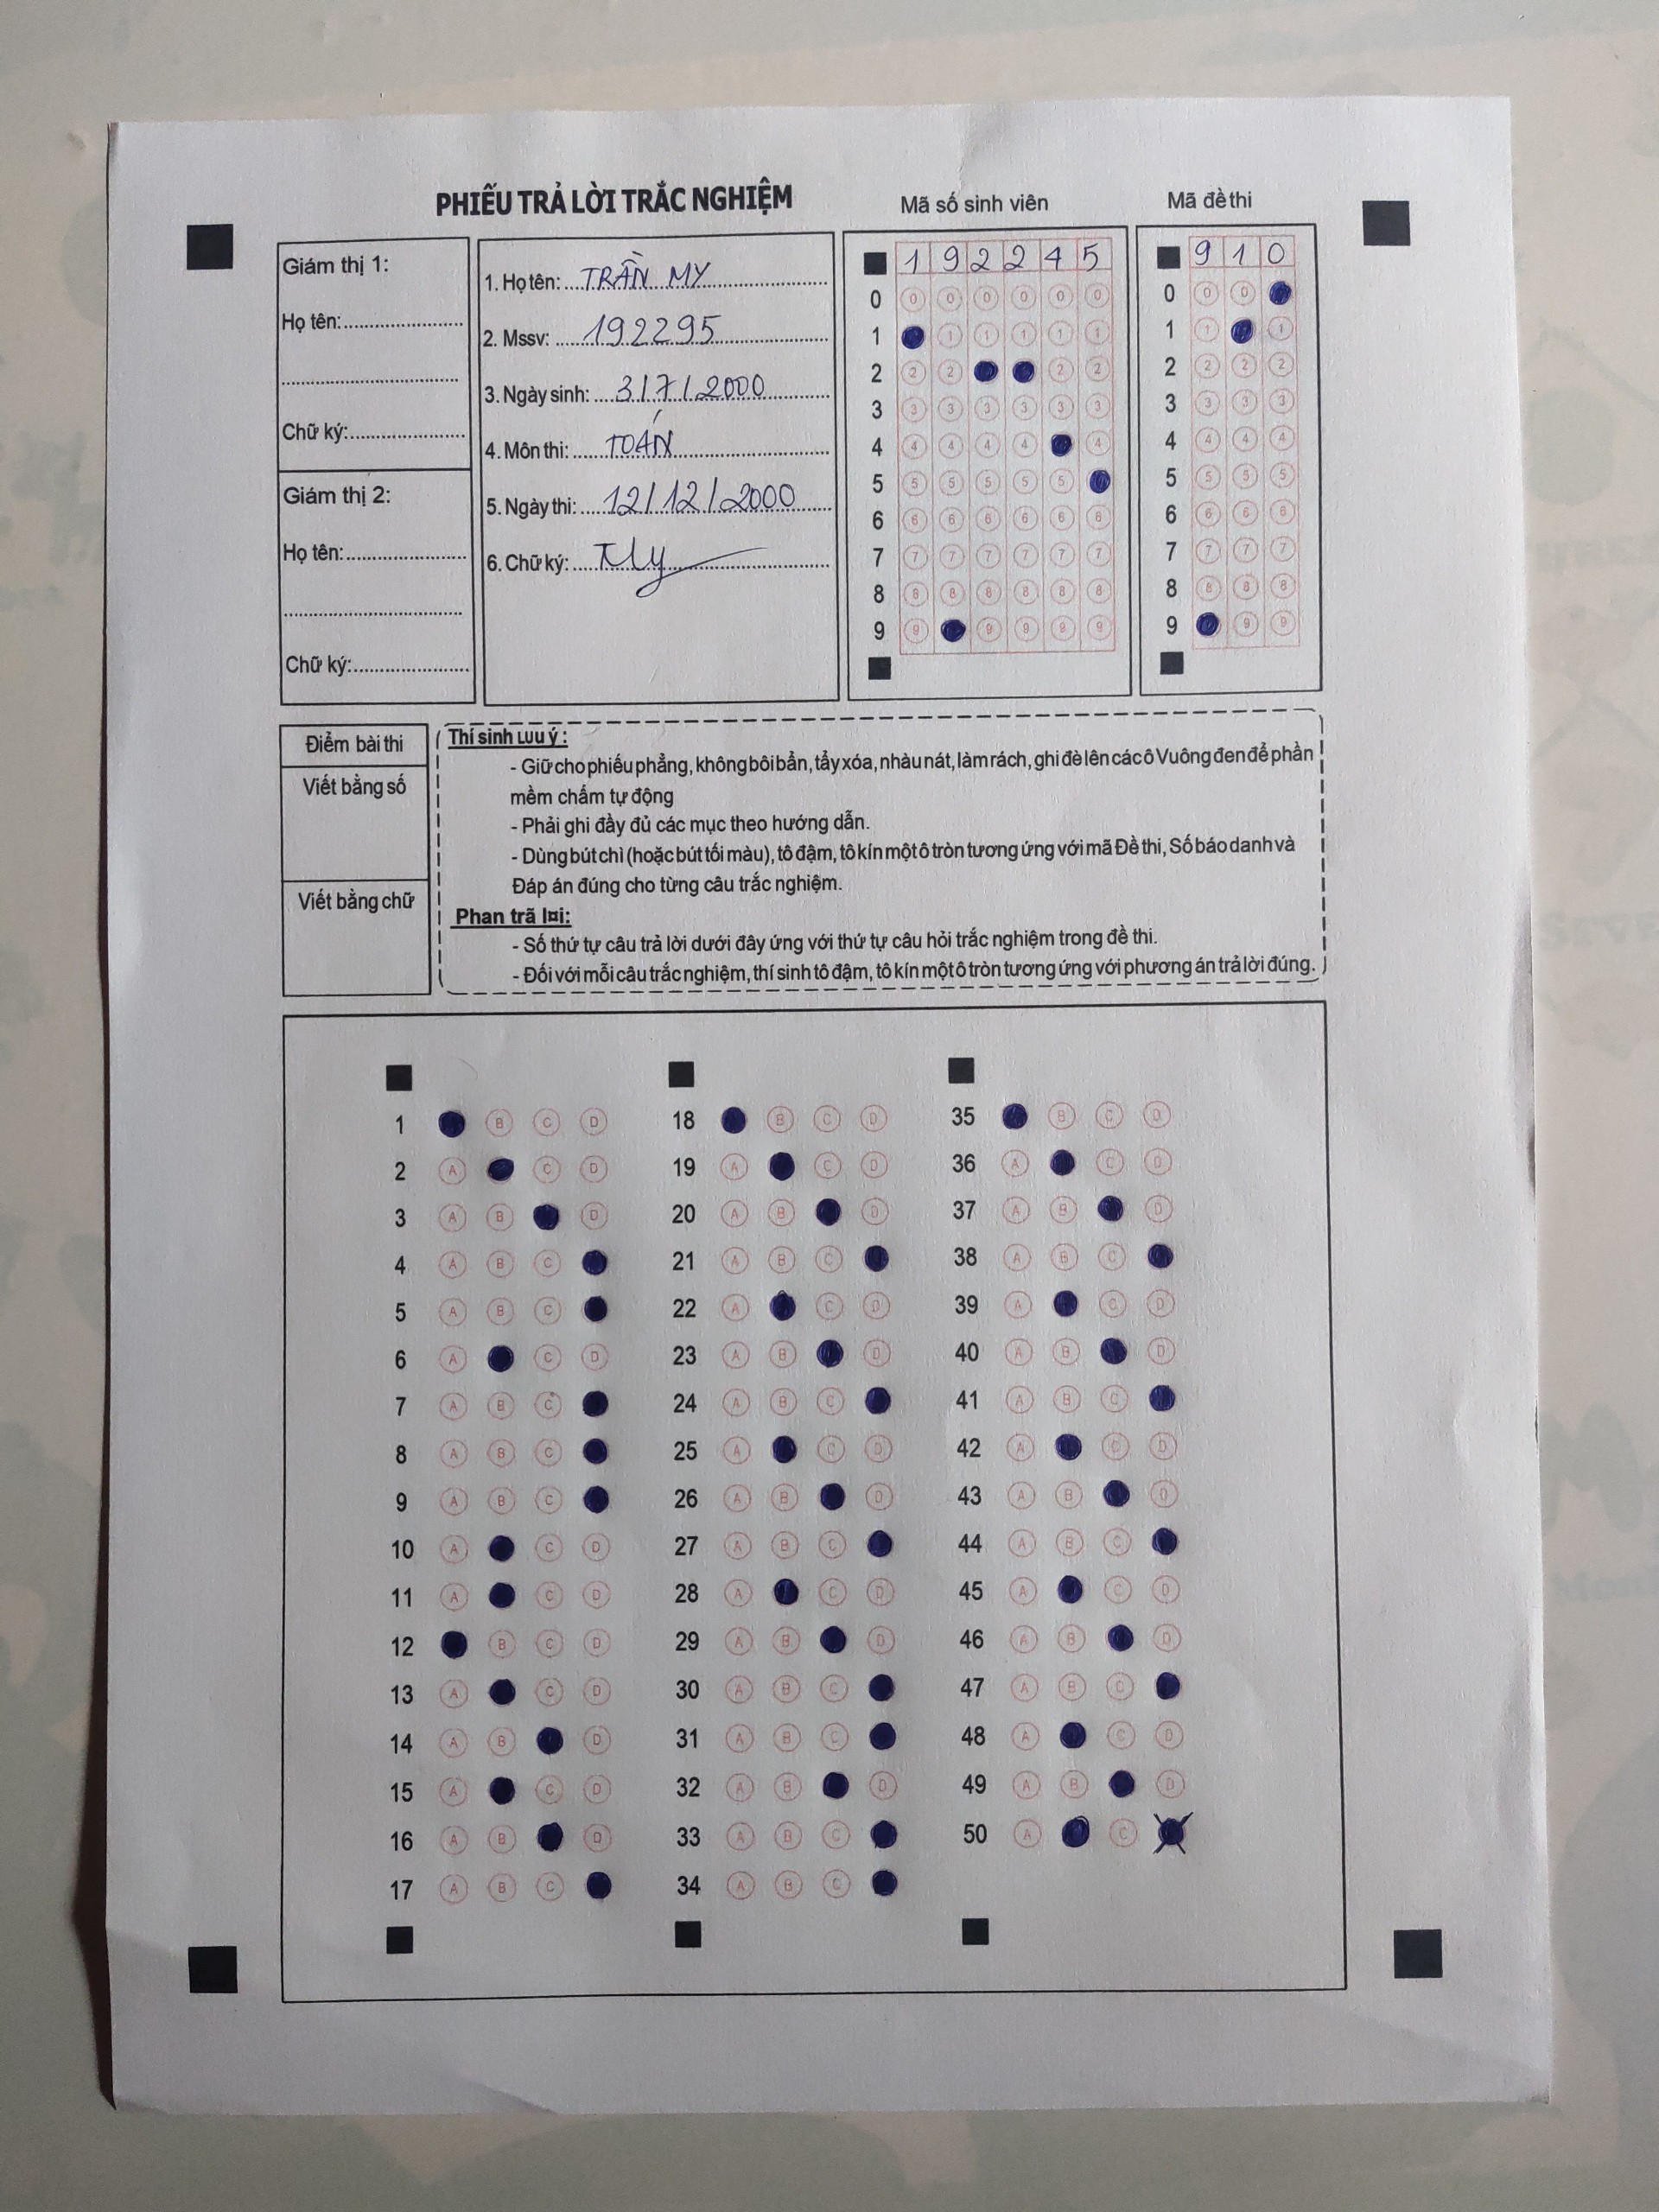 PHIẾU TRẢ LỜI TRẮC NGHIỆM
Mã số sinh viên
Mã đề thi
Giám thị 1:
Họ tên:
Chữ ký:
Giám thị 2:
Họ tên:
Chữ ký:
1. Họ tên: TRẦN MY
2. Mssv: 192295
3. Ngày sinh: 3/7/2000
4. Môn thi: TOÁN
5. Ngày thi: 12/12/2000
6. Chữ ký: My
1 9 2 2 4 5
0 0 0 0 0 0 0
1 1 1 1 1 1
2 2 2 2 2
3 3 3 3 3 3 3
4 4 4 4 4 4
5 5 5 5 5 5
6 6 6 6 6 6 6
7 7 7 7 7 7 7
8 8 8 8 8 8 8
9 9 9 9 9 9
9 1 0
0 0 0
1 1 1
2 2 2 2
3 3 3 3
4 4 4 4
5 5 5 5
6 6 6 6
7 7 7 7
8 8 8 8
9 9 9
Điểm bài thi
Viết bằng số
Viết bằng chữ
Thí sinh Lưu ý :
- Giữ cho phiếu phẳng, không bôi bẩn, tẩy xóa, nhàu nát, làm rách, ghi đè lên các ô Vuông đen để phần
mềm chấm tự động
- Phải ghi đầy đủ các mục theo hướng dẫn.
- Dùng bút chì (hoặc bút tối màu), tô đậm, tô kín một ô tròn tương ứng với mã Đề thi, Số báo danh và
Đáp án đúng cho từng câu trắc nghiệm.
Phan trã l¤i:
- Số thứ tự câu trả lời dưới đây ứng với thứ tự câu hỏi trắc nghiệm trong đề thi.
- Đối với mỗi câu trắc nghiệm, thí sinh tô đậm, tô kín một ô tròn tương ứng với phương án trả lời đúng.
1 B C D
2 A C D
3 A B D
4 A B C
5 A B C
6 A C D
7 A B C
8 A B C
9 A B C
10 A C D
11 A C D
12 B C D
13 A C D
14 A B D
15 A C D
16 A B D
17 A B C
18 B C D
19 A C D
20 A B D
21 A B C
22 A C D
23 A B D
24 A B C
25 A C D
26 A B D
27 A B C
28 A C D
29 A B D
30 A B C
31 A B C
32 A B D
33 A B C
34 A B C
35 B C D
36 A C D
37 A B D
38 A B C
39 A C D
40 A B D
41 A B C
42 A C D
43 A B D
44 A B C
45 A C D
46 A B D
47 A B C
48 A C D
49 A B D
50 A C